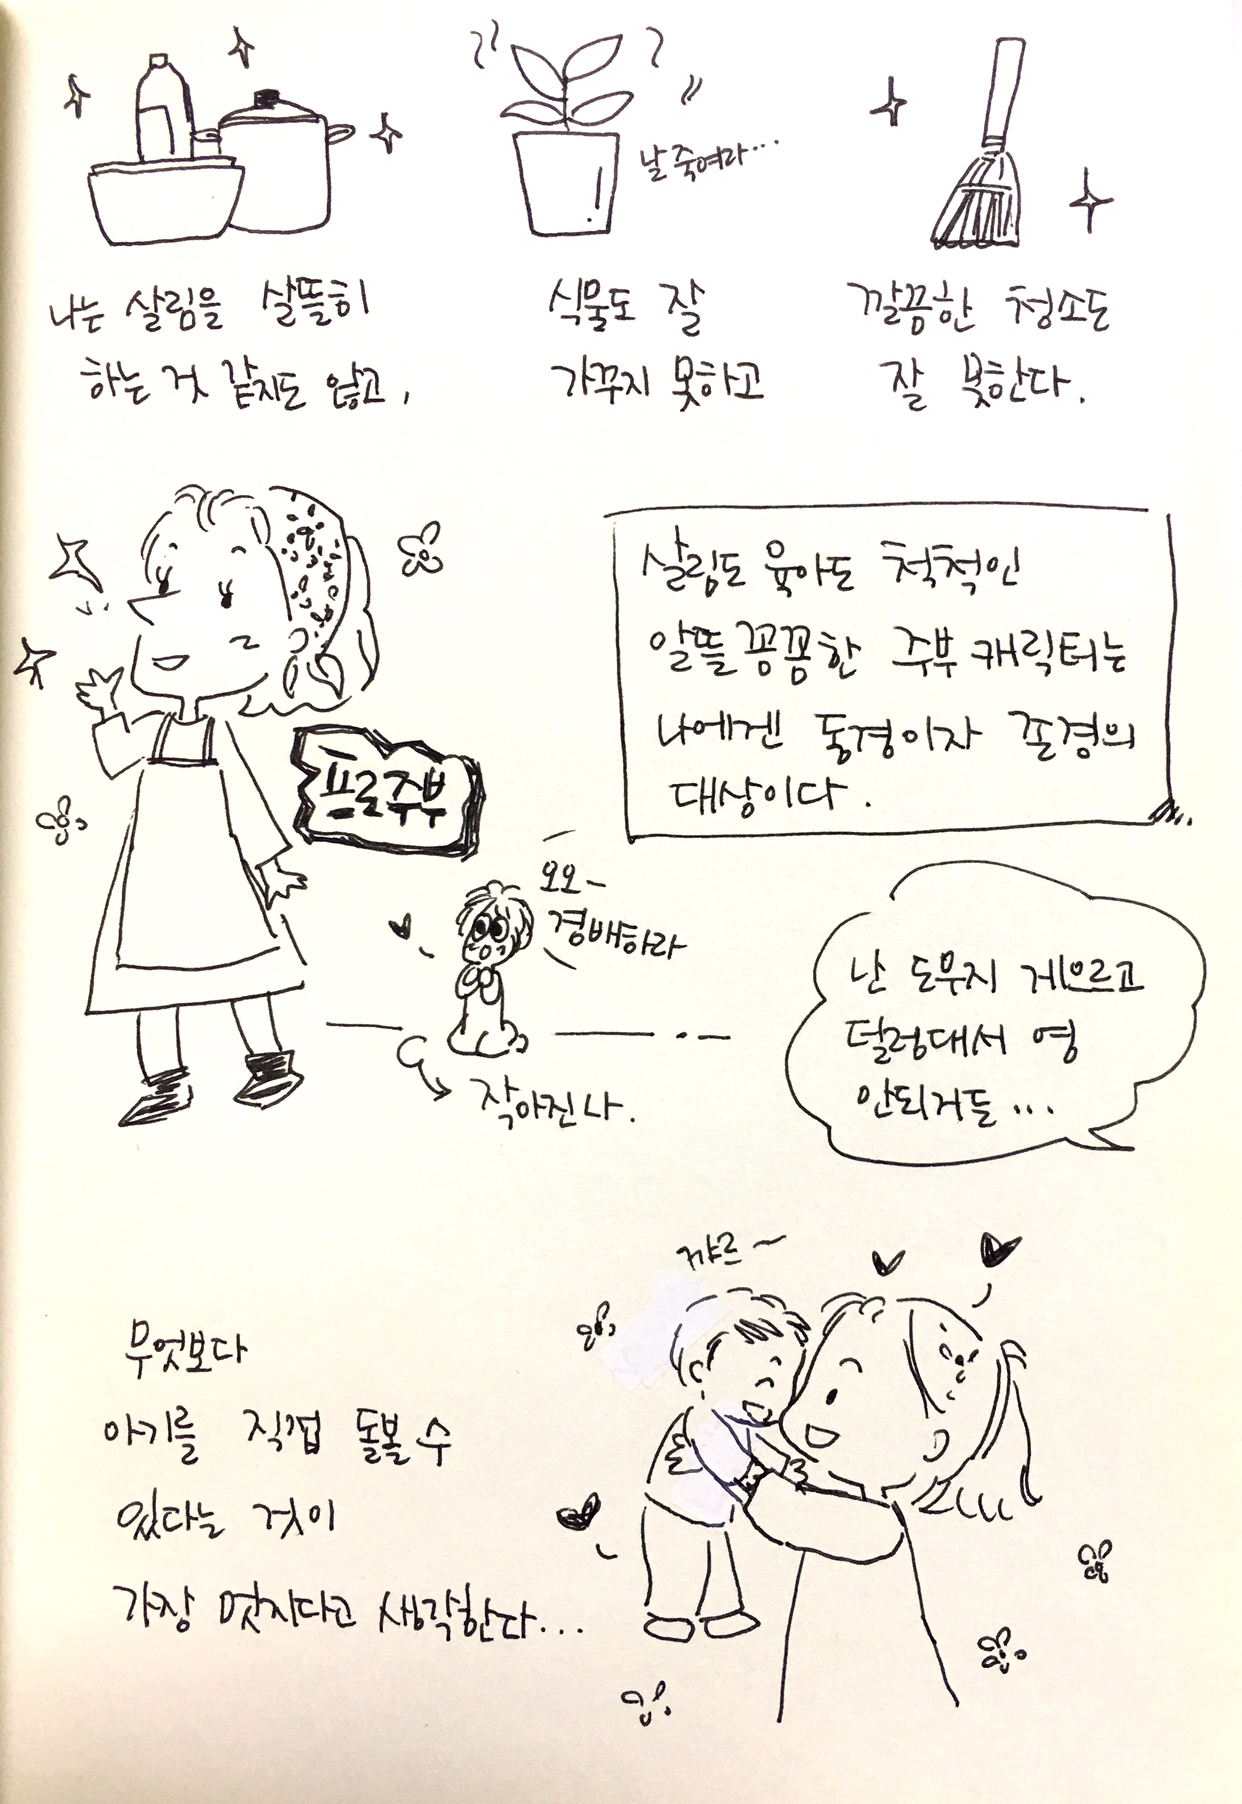 날 죽여라...
나는 살림을 살뜰히
하는 것 같지도 않고,
식물도 잘
가꾸지 못하고
깔끔한 청소도
잘 못한다.
살림도 육아도 척척인
알뜰 꼼꼼한 주부 캐릭터는
나에겐 동경이자 존경의
대상이다.
프로주부
오오~
경배하라
작아진 나.
난 도무지 게으르고
덜렁대서 영
안되거든...
꺄르~
무엇보다
아기를 직접 돌볼 수
있다는 것이
가장 멋지다고 생각한다...